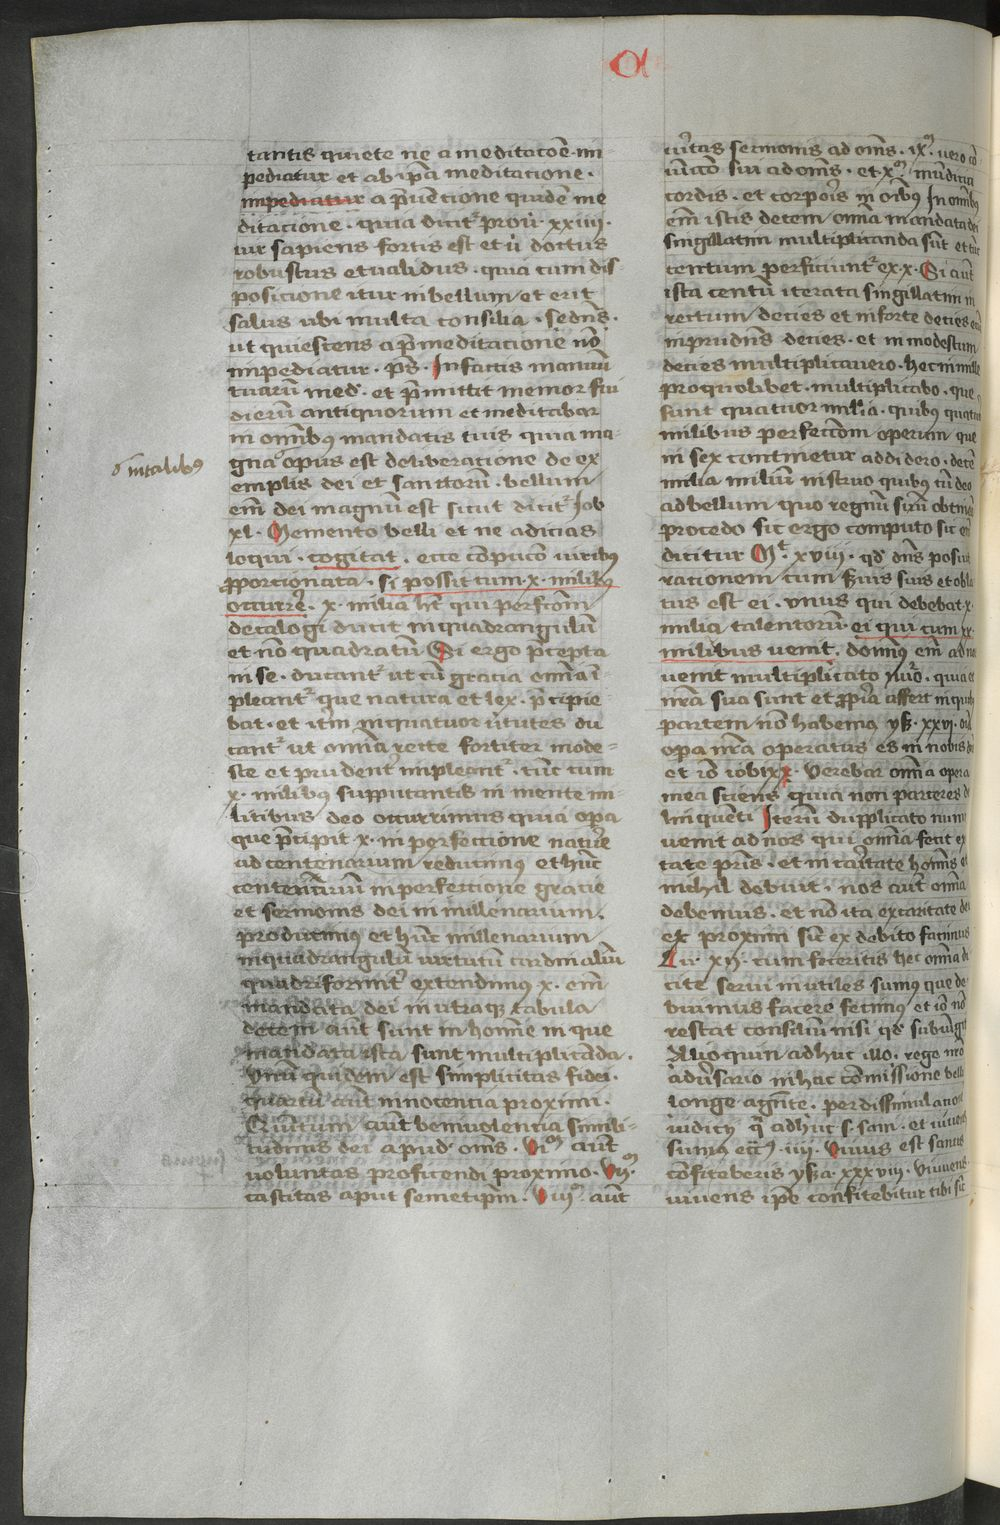 a
tantis quiete ne a meditacoē im
pediatur et ab ip̄a meditacione .
impediatur a p̄uencione quidē me
ditacione . quia dicit᷑ prou̇ . xxiiii .
uir sapiens fortis est et ů doctus
robustus et ualidus . quia cum dis
posicione itur in bellum / et erit
salus ubi multa consilia . Sedn̄s .
ut quiescens a p̄meditacione nō
impediatur . ps̄ . In factis manuū
tuarū med̄ . et p̄mittit memor fui
dierū antiquorum et meditabar
in om̄ibꝰ mandatis tuis quia ma
gna opus est deliberacione de ex
emplis dei et sanctorū . bellum
em̄ dei magnū est sicut dicit᷑ Iob
xl . Memento belli et ne adicias
loqui . cogitat . ecce cōputō uiribꝰ
ꝓporcionata . si possit cum . x . milibꝰ
occurre᷑ . x . milia hꝫ qui perfcōm̄
decalogi ducit in quadrangulū
et nō quadratū Si ergo p̄cepta
in se . ducant᷑ ut cū gracia om̄ia ī
pleant᷑ que natura et lex . p̄cipie
bat . et itm̄ in quatuor ūtutes du
cant᷑ ut om̄ia recte fortiter mode=
ste et prudent᷑ impleant᷑ . tūc cum
x . milibꝰ supputantis in mente mi
litibus deo occurrimus quia opa
que p̄cipit x . in perfectione nature
ad centenarium reducimꝰ et hūc
centenariū in perfectione gracie
et sermonis dei in millenarium .
producimꝰ et hūc millenarium
in quadrangulū uirtutū cardinaliū
quadriformit᷑ extendimꝰ x . em̄
mandata dei in utraqꝫ tabula
decem aūt sunt in homie in que
mandata ista sunt multiplicāda .
Vnū quidem est simplicitas fidei .
quartū aūt innocencia proximi .
Quintum aūt beniuolencia simili=
tudinis dei apud om̄s . Viͫ aūt
uoluntas proficiendi proximo . Viiͫ
castitas aput semetipm̄ . Viiiͫ aūt
o in talibꝰ
u᷑itas sermonis ad om̄s . ixͫ . uero cō
sui ad om̄s . et xͫ mūdicia
cordis . et corpois in oībꝰ In om̄ibꝰ
em̄ istis decem om̄ia mandata dei
singillatim multiplicanda sūt et tūc
centum perficiunt᷑ ex . x . Si aūt
ista centū iterata singillatim in
rectum decies et in forte decies
in prudn̄s decies . et in modestum
decies multiplicauero . hec in mille
pro quolibet . multiplicabo . que
sunt quatuor milia . quibꝰ
milibus perfectōm operum que
in sex continetur addidero . decē
milia miliū instruo quibꝰ cū deo
ad bellum quo regnū suū
procedo sic ergo computo sic em̄
dicitur Mͭ . xviii . qd̄ dn̄s posuit
rationem cum suis et obla
tus est ei . vnus qui debebat . x .
milia talentorū . ei qui cum xx .
milibus uenit . dominꝰ em̄ ad nos
uenit multiplicato . quia
nr̄a sua sunt et ꝓpria affert in quibꝰ
partem nō habemꝰ ys̄ . xxvi . oīa
opa nr̄a operatus es in nobis
et iō iob ixͦ . Verebar om̄ia opera
mea sciens quia non parceres de
linquenti Iterū dupplicato
uenit ad nos qui om̄ia fecit ex
tate pris̄ . et in cāitate hom̄is et
nichil debuit . nos aūt om̄ia
debemus . et nō ita ex caritate dei
et proximi sic ex debito facimus
Luͨ xvii . cum feceritis hec om̄ia di
cite serui inutiles sumꝰ que de
buimus facere fecimꝰ et iō nō
restat consiliū nisi qd̄
Alioquin adhuc illo . rege nr̄o
adūsario in hac cōmissione belli
longe agn̄te . per dissimulacioē
iudicij adhuc s . sani . et
sumꝰ . iiii . Viuus est sanus
cōfiteberis ysa . xxxviii . Viuens
uiuens ip̄e confitebitur tibi sic̄